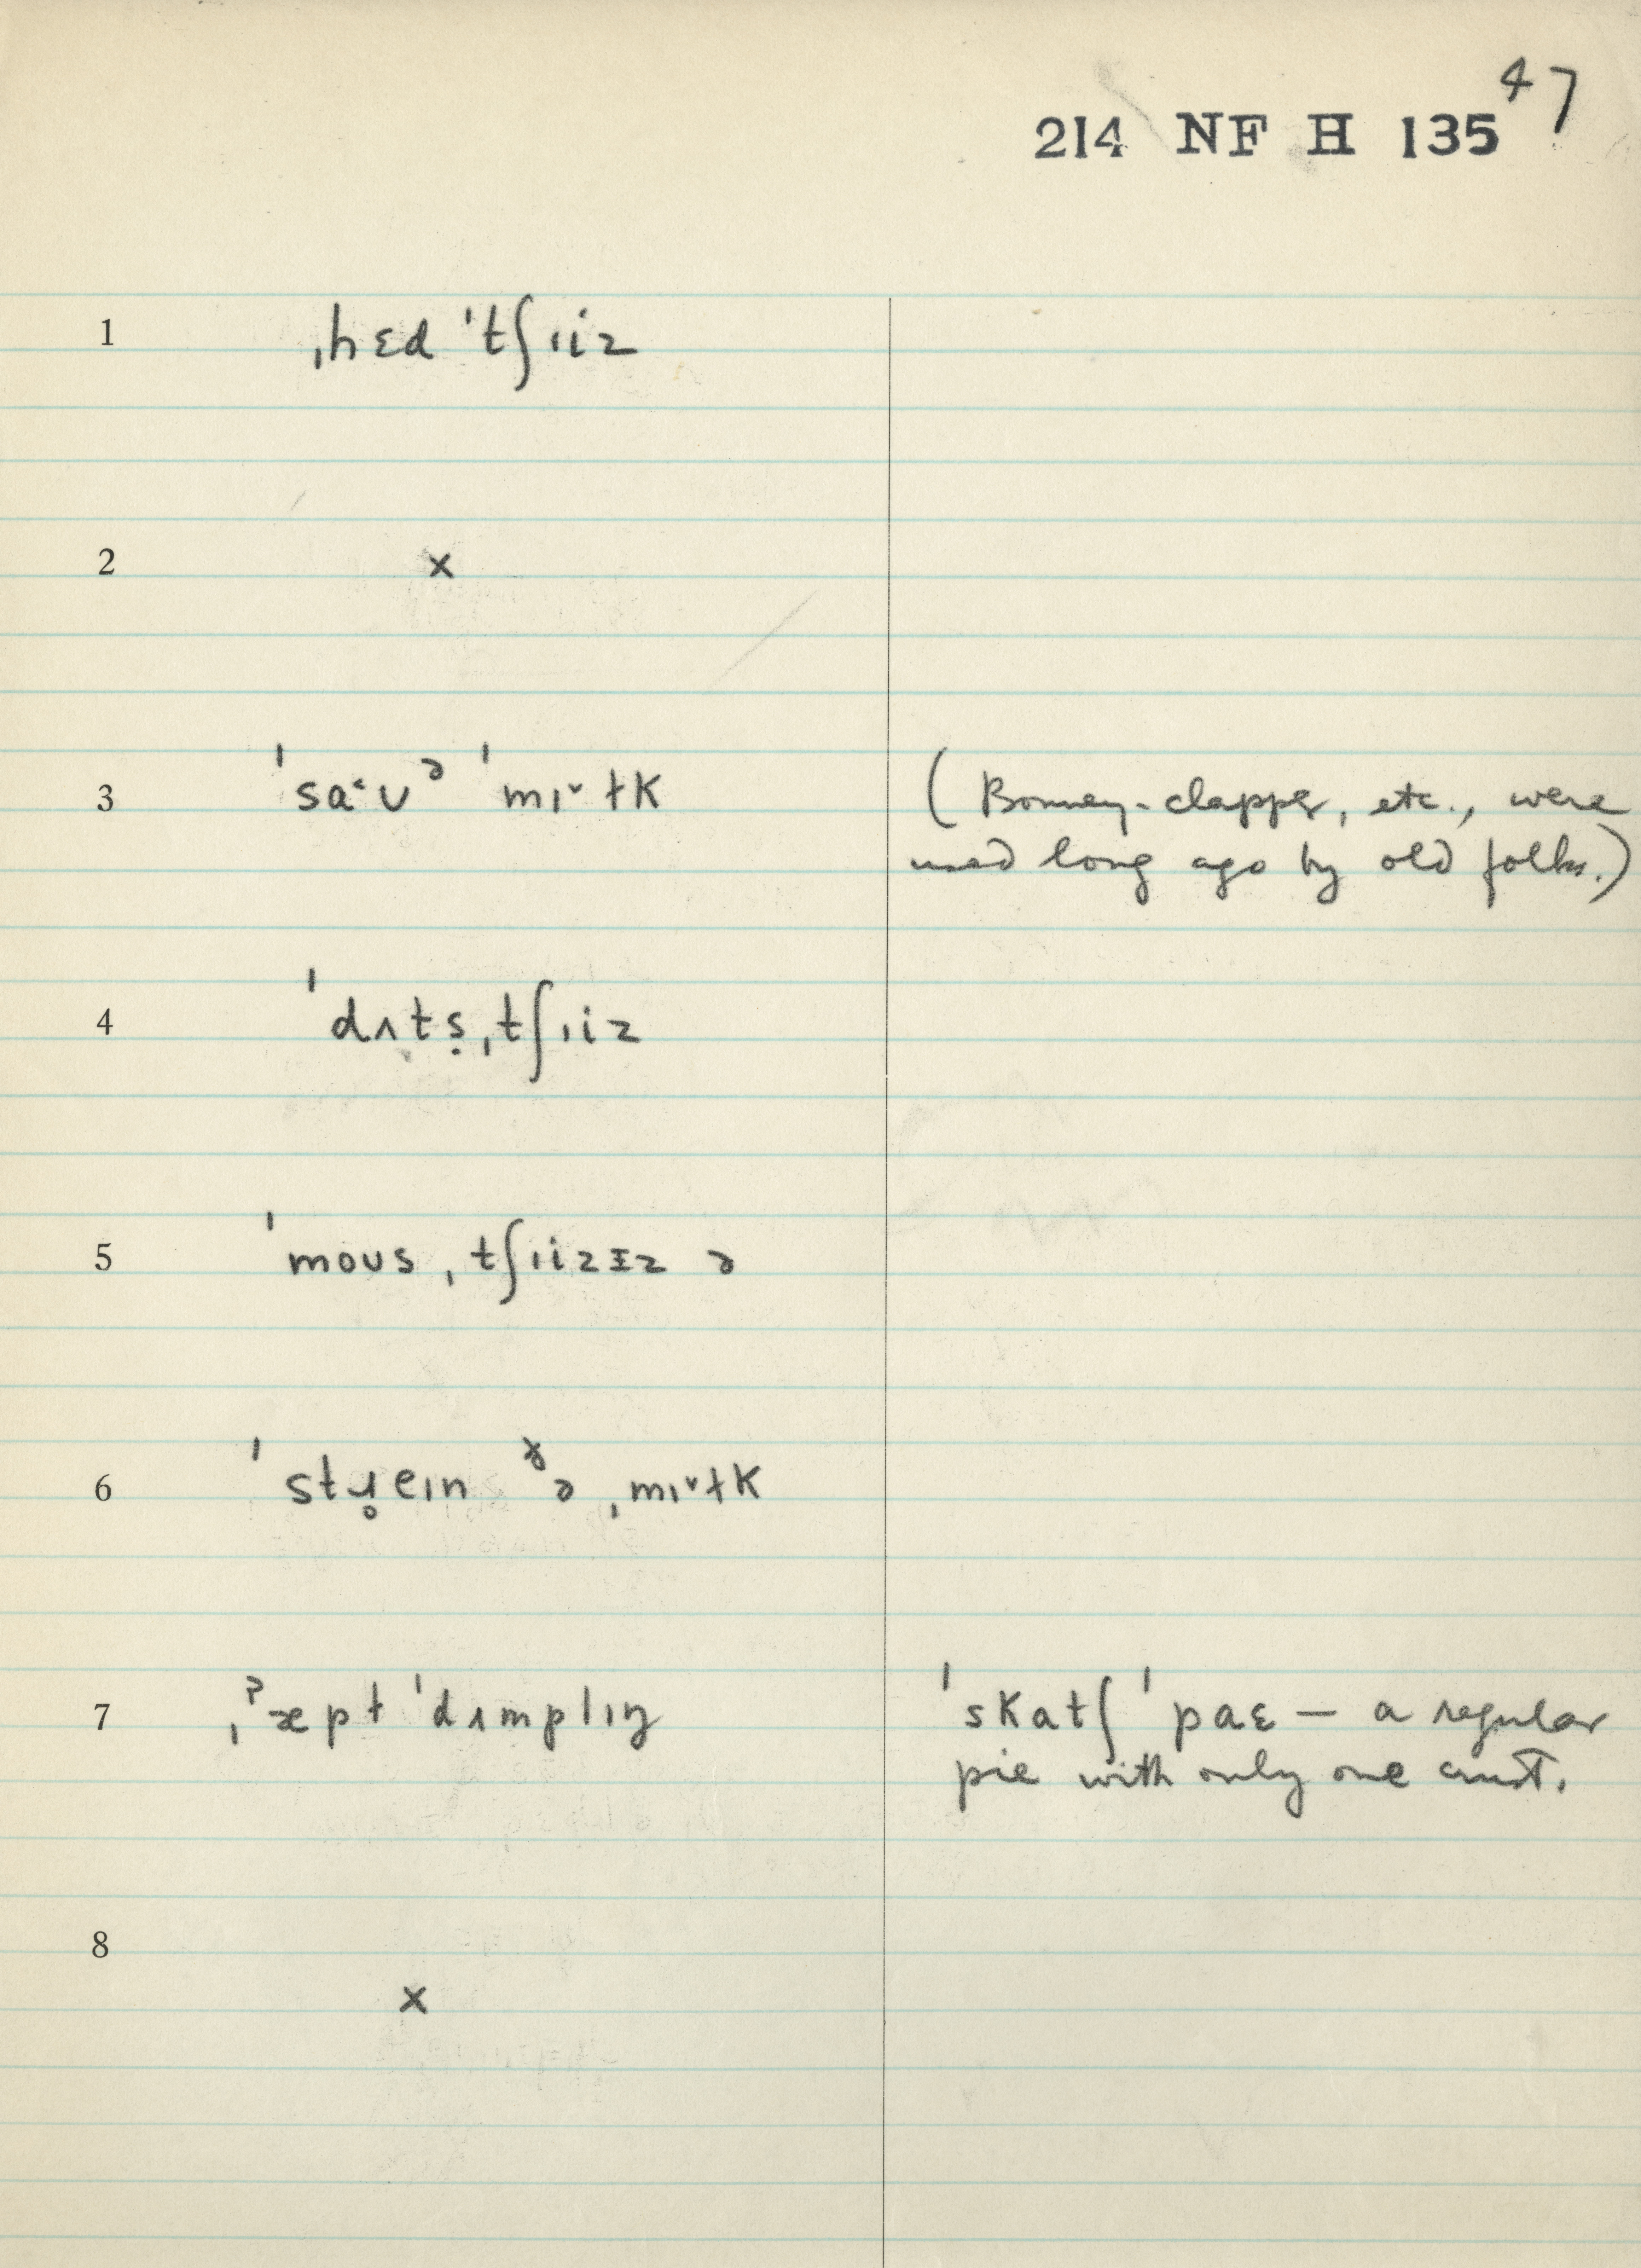 47
214 NF H 135
1 ˌhɛd ˈtʃɪiz
2 x
3 ˈsa˂ʊᵊ ˈmɪ˅ɫk (Bonney-clapper, etc., were
used long ago by old folks.)
4 ˈdʌtṣˌtʃɪiz
5 ˈmoʊsˌtʃɪizɪz ə
6 ˈstɹ̥eɪn ᵟə ˌmɪ˅ɫk
7 ˌˀæpɫ ˈdʌmplɪŋ ˈskatʃ ˈpaɛ — a regular
pie with only one crust.
8
x